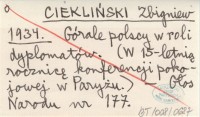 CIEKLIŃSKI Zbigniew
1934. Górale polscy w roli
dyplomatów. (W 15-letnią
rocznicę konferencji poko-
jowej w Paryżu.) Głos
Narodu nr 177.
BJ/1081/0087